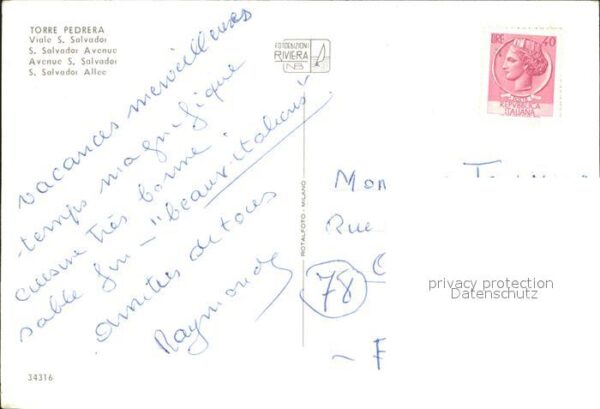 TORRE PEDRERA
Viale S. Salvador
S. Salvador Avenue
Avenue S. Salvador
S. Salvador Allee
FOTOEDIZIONI
RIVIERA
LIRE 40
REPVBBLICA
ITALIANA
vacances merveilleuses
temps magnifique
cuisine très bonne.
sable fin - "beaux italiens"
amitiés de tous
Raymonde
ROTALFOTO - MILANO
Mon
Rue
78
- F
privacy protection
Datenschutz
34316